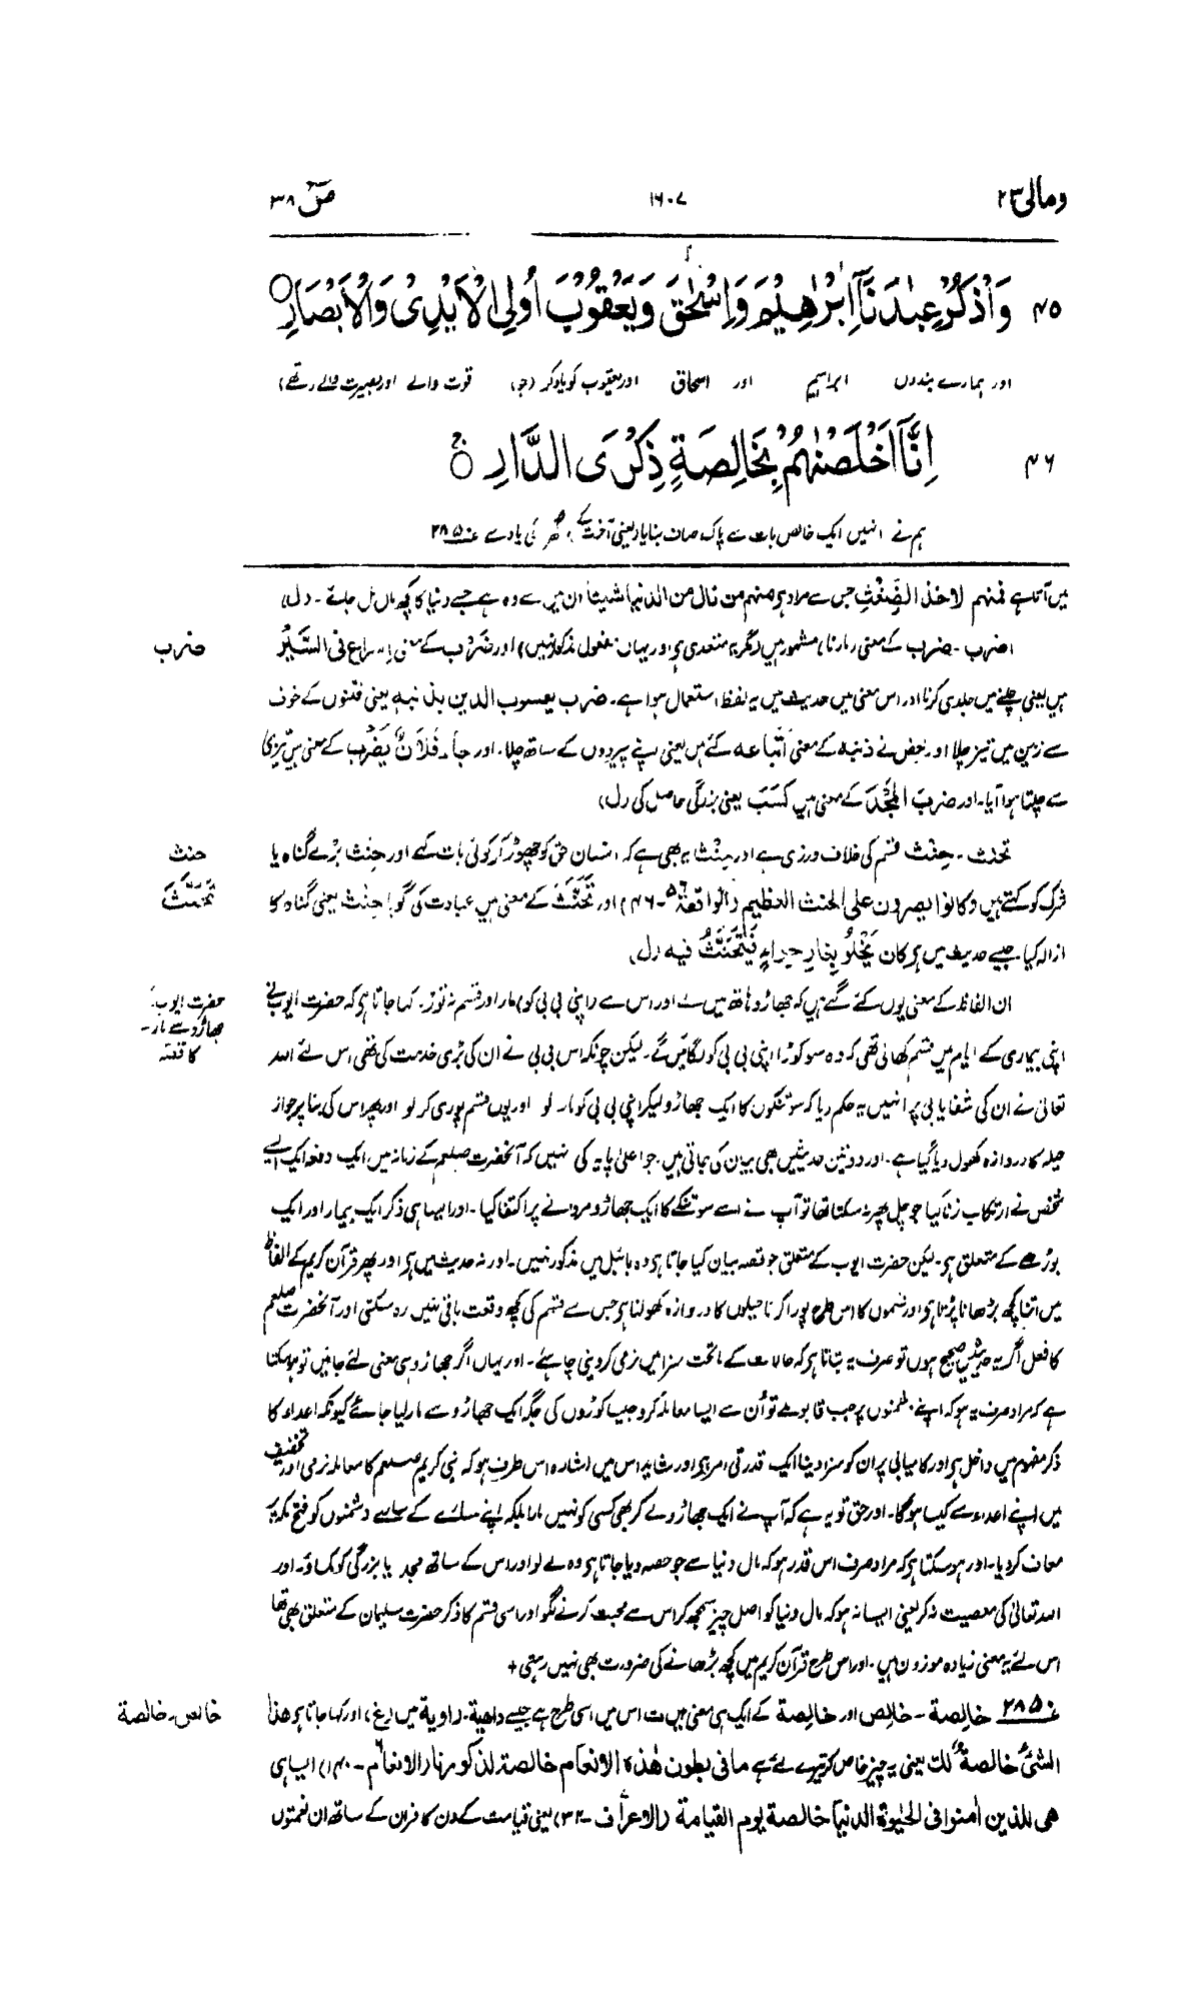 ومالی ۲۳
۱۶۰۷
صٓ ۳۸
۴۵ وَاذْكُرْ عِبٰدَنَآ اِبْرٰهِيْمَ وَاِسْحٰقَ وَيَعْقُوْبَ اُولِي الْاَيْدِيْ وَالْاَبْصَارِ ○
اور ہمارے بندوں ابراہیم اور اسحاق اور یعقوب کو یاد کر (جو) قوت والے اور بصیرت والے (تھے)
۴۶ اِنَّآ اَخْلَصْنٰهُمْ بِخَالِصَةٍ ذِكْرَى الدَّارِ ○ۚ
ہم نے انہیں ایک خالص بات سے پاک صاف بنایا (یعنی آخرت کے) گھر کی یاد سے ۲۸۵۰
میں آتا ہے فمنهم لاخذ الضِغْثِ جس سے مراد ہو منهم من نال من الدنيا شيئا ان میں سے وہ ہے جسے دنیا کا کچھ مال مل جائے۔ (ل)
اضرب۔ ضرب کے معنی (مارنا) مشہور ہیں (مگر یہ متعدی ہے اور یہاں مفعول مذکور نہیں) اور ضَرَب کے معنی اسراع فی السَّیْر
ضرب
ہیں یعنی چلنے میں جلدی کرنا اور اس معنی میں حدیث میں یہ لفظ استعمال ہوا ہے۔ ضرب یعسوب الدین بذنبہ یعنی فتنوں کے خوف
سے زمین میں تیز چلا اور بعض نے ذنبہ کے معنی اَتْبَاعه کئے ہیں یعنی اپنے پیردوں کے ساتھ چلا۔ اور جاء فُلَانٌ یَضْرِب کے معنی ہیں تیزی
سے چلتا ہوا آیا۔ اور ضربَ المَجْدَ کے معنی ہیں کَسَبَ یعنی بزرگی حاصل کی (ل)
تحنث۔ حِنْث قسم کی خلاف ورزی ہے اور حِنْث یہ بھی ہے کہ انسان حق کو چھوڑ کر کوئی بات کہے اور حِنْث بڑے گناہ یا
حنث
شرک کو کہتے ہیں وکانوا یصرون علی الحنث العظیم (الواقعة ۵۶۔ ۴۶) اور تَحَنُّث کے معنی ہیں عبادت کی گویا حِنْث یعنی گناہ کا
تَحَنُّث
ازالہ کیا۔ جیسے حدیث میں ہو کان یَخْلُوْ بِغَارِ حِرَاءٍ فَیَتَحَنَّثُ فیه (ل)
ان الفاظ کے معنی یوں کئے گئے ہیں کہ جھاڑو ہاتھ میں لے اور اس سے (اپنی بی بی کو) مار اور قسم نہ توڑ۔ کہا جاتا ہو کہ حضرت ایوب نے
حضرت ایوب
جھاڑو سے مار۔
کا قصہ
اپنی بیماری کے ایام میں قسم کھائی تھی کہ وہ سو کوڑا اپنی بی بی کو لگائیں گے۔ لیکن چونکہ اس بی بی نے ان کی بڑی خدمت کی تھی اس لئے اللہ
تعالیٰ نے ان کی شفایابی پر انہیں یہ حکم دیا کہ سو تنکوں کا ایک جھاڑو لیکر اپنی بی بی کو مار لو اور یوں قسم پوری کر لو اور پھر اس کی بنا پر جواز
حیلہ کا دروازہ کھول دیا گیا ہے۔ اور دو تین حدیثیں بھی بیان کی جاتی ہیں۔ جو اعلیٰ پایہ کی نہیں کہ آنحضرت صلعم کے زمانہ میں ایک دفعہ ایک ایسے
شخص نے ارتکاب زنا کیا جو چل پھر نہ سکتا تھا تو آپ نے اسے سو تنکے کا ایک جھاڑو مروانے پر اکتفا کیا۔ اور ایسا ہی ذکر ایک بیمار اور ایک
بوڑھے کے متعلق ہو۔ لیکن حضرت ایوب کے متعلق جو قصہ بیان کیا جاتا ہو وہ بائبل میں مذکور نہیں۔ اور نہ حدیث میں ہو اور پھر قرآن کریم کے الفاظ
میں اتنا کچھ بڑھانا پڑتا ہو اور قسموں کا اس طرح پورا کرنا حیلوں کا دروازہ کھولنا ہو جس سے قسم کی کچھ وقعت باقی نہیں رہ سکتی اور آنحضرت صلعم
کا فعل اگر یہ حدیثیں صحیح ہوں تو صرف یہ بتاتا ہو کہ حالات کے ماتحت سزا میں نرمی کر دینی چاہئے۔ اور یہاں اگر جھاڑو ہی معنی لئے جائیں تو ہو سکتا
ہے کہ مراد صرف یہ ہو کہ اپنے دشمنوں پر جب قابو ملے تو اُن سے ایسا معاملہ کرو جیسا کوڑوں کی جگہ ایک جھاڑو سے مار لیا جائے کیونکہ اعداء کا
ذکر مفہوم میں داخل ہو اور کامیابی پر ان کو سزا دینا ایک قدرتی امر ہو اور شاید اس میں اشارہ اس طرف ہو کہ نبی کریم صلعم کا معاملہ نرمی اور تخفیف
میں اپنے اعداء سے کیسا ہوگا۔ اور حق تو یہ ہے کہ آپ نے ایک جھاڑو لے کر بھی کسی کو نہیں مارا بلکہ اپنے سارے کے سارے دشمنوں کو فتح مکہ پر
معاف کر دیا۔ اور ہو سکتا ہو کہ مراد صرف اس قدر ہو کہ مال دنیا سے جو حصہ دیا جاتا ہو وہ لے لو اور اس کے ساتھ مجد یا بزرگی کو کماؤ۔ اور
اللہ تعالیٰ کی معصیت نہ کر یعنی ایسا نہ ہو کہ مال دنیا کو اصل چیز سمجھ کر اس سے محبت کرنے لگو اور اسی قسم کا ذکر حضرت سلیمان کے متعلق بھی تھا
اس لئے یہ معنی زیادہ موزون ہیں۔ اور اس طرح قرآن کریم میں کچھ بڑھانے کی ضرورت بھی نہیں رہتی +
۲۸۵۰ خالِصة۔ خالِص اور خالِصة کے ایک ہی معنی ہیں ت اس میں اسی طرح ہے جیسے داهیة۔ راویة میں (غ)، اور کہا جاتا ہو هذا
خالص۔ خالصة
الشئُ خالصةٌ لك یعنی یہ چیز خاص کر تیرے لئے ہے ما فی بطون هٰذه الانعام خالصة لذکورنا (الانعام ۔ ۱۴۰) ایسا ہی
هی للذین اٰمنوا فی الحیٰوة الدنیا خالصة یوم القیامة (الاعراف ۔ ۳۲) یعنی قیامت کے دن کافران کے ساتھ ان نعمتوں